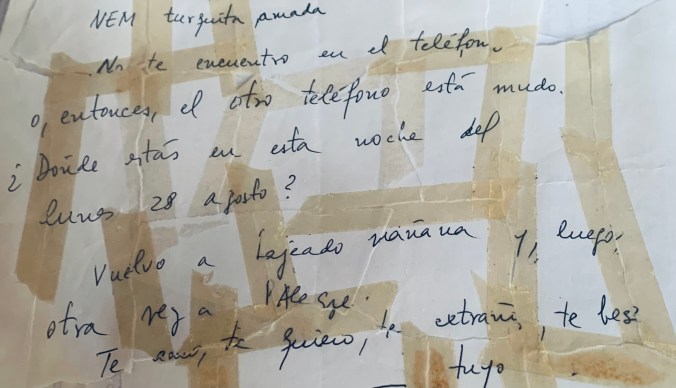 NEM turquita amada
No te encuentro en el teléfon.
o, entonces, el otro teléfono está mudo.
¿Dónde estás en esta noche del
lunes 28 agosto?
Vuelvo a Lajeado mañana y, luego,
otra vez a PAlegre.
Te amo, te quiero, te extraño, te beso
tuyo